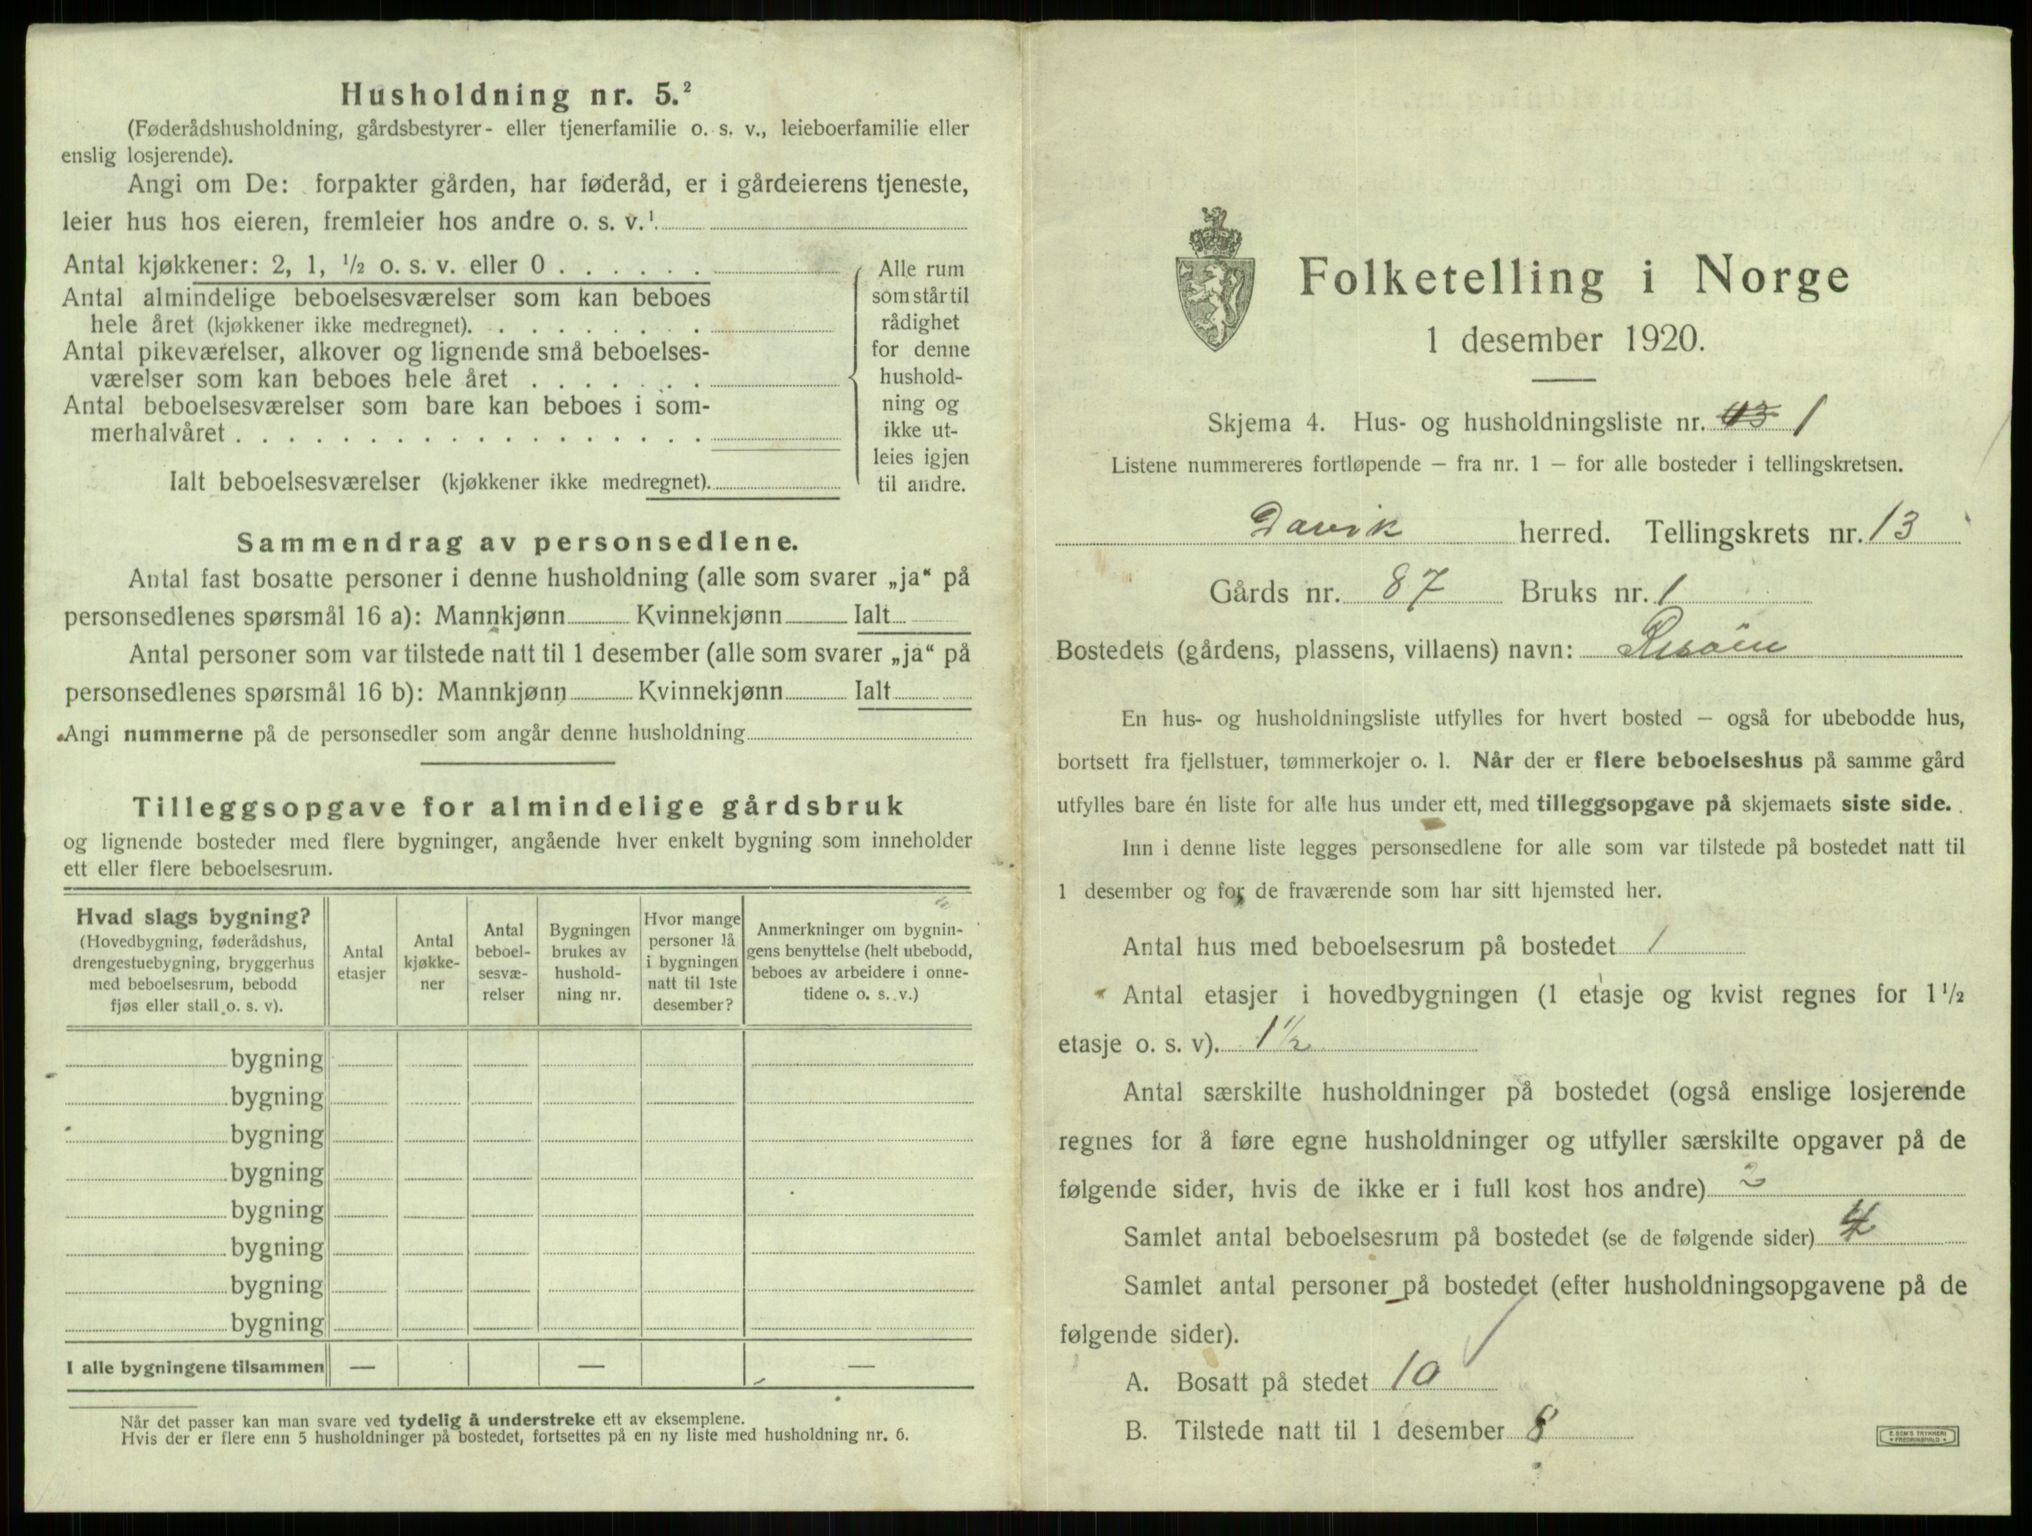 Husholdning nr. 5.²
(Føderådshusholdning, gårdsbestyrer- eller tjenerfamilie o. s. v., leieboerfamilie eller
enslig losjerende).
Angi om De: forpakter gården, har føderåd, er i gårdeierens tjeneste,
leier hus hos eieren, fremleier hos andre o. s. v.¹
Antal kjøkkener: 2, 1, ½ o. s. v. eller 0
Antal almindelige beboelsesværelser som kan beboes
hele året (kjøkkener ikke medregnet).
Antal pikeværelser, alkover og lignende små beboelses-
værelser som kan beboes hele året
Antal beboelsesværelser som bare kan beboes i som-
merhalvåret
Ialt beboelsesværelser (kjøkkener ikke medregnet).
Alle rum
som står til
rådighet
for denne
hushold-
ning og
ikke ut-
leies igjen
til andre.
Sammendrag av personsedlene.
Antal fast bosatte personer i denne husholdning (alle som svarer „ja“ på
personsedlenes spørsmål 16 a): Mannkjønn Kvinnekjønn Ialt
Antal personer som var tilstede natt til 1 desember (alle som svarer „ja“ på
personsedlenes spørsmål 16 b): Mannkjønn Kvinnekjønn Ialt
Angi nummerne på de personsedler som angår denne husholdning
Tilleggsopgave for almindelige gårdsbruk
og lignende bosteder med flere bygninger, angående hver enkelt bygning som inneholder
ett eller flere beboelsesrum.
Hvad slags bygning?
(Hovedbygning, føderådshus,
drengestuebygning, bryggerhus
med beboelsesrum, bebodd
fjøs eller stall o. s. v).
Antal
etasjer
Antal
kjøkke-
ner
Antal
beboel-
sesvæ-
relser
Bygningen
brukes av
hushold-
ning nr.
Hvor mange
personer lå
i bygningen
natt til 1ste
desember?
Anmerkninger om bygnin-
gens benyttelse (helt ubebodd,
beboes av arbeidere i onne-
tidene o. s. v.)
bygning
bygning
bygning
bygning
bygning
bygning
bygning
bygning
I alle bygningene tilsammen — — —
Når det passer kan man svare ved tydelig å understreke ett av eksemplene.
Hvis der er flere enn 5 husholdninger på bostedet, fortsettes på en ny liste med husholdning nr. 6.
Folketelling i Norge
1 desember 1920.
Skjema 4. Hus- og husholdningsliste nr. 1
Listene nummereres fortløpende — fra nr. 1 — for alle bosteder i tellingskretsen.
Davik herred. Tellingskrets nr. 13
Gårds nr. 87 Bruks nr. 1
Bostedets (gårdens, plassens, villaens) navn:
En hus- og husholdningsliste utfylles for hvert bosted — også for ubebodde hus,
bortsett fra fjellstuer, tømmerkojer o. l. Når der er flere beboelseshus på samme gård
utfylles bare én liste for alle hus under ett, med tilleggsopgave på skjemaets siste side.
Inn i denne liste legges personsedlene for alle som var tilstede på bostedet natt til
1 desember og for de fraværende som har sitt hjemsted her.
Antal hus med beboelsesrum på bostedet 1
Antal etasjer i hovedbygningen (1 etasje og kvist regnes for 1½
etasje o. s. v). 1½
Antal særskilte husholdninger på bostedet (også enslige losjerende
regnes for å føre egne husholdninger og utfyller særskilte opgaver på de
følgende sider, hvis de ikke er i full kost hos andre) 2
Samlet antal beboelsesrum på bostedet (se de følgende sider) 4
Samlet antal personer på bostedet (efter husholdningsopgavene på de
følgende sider).
A. Bosatt på stedet 10
B. Tilstede natt til 1 desember 8
E. SEM'S TRYKKERI
FREDRIKSHALD